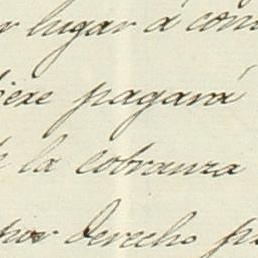 lugar á con
pagará
la cobranza
por derecho p